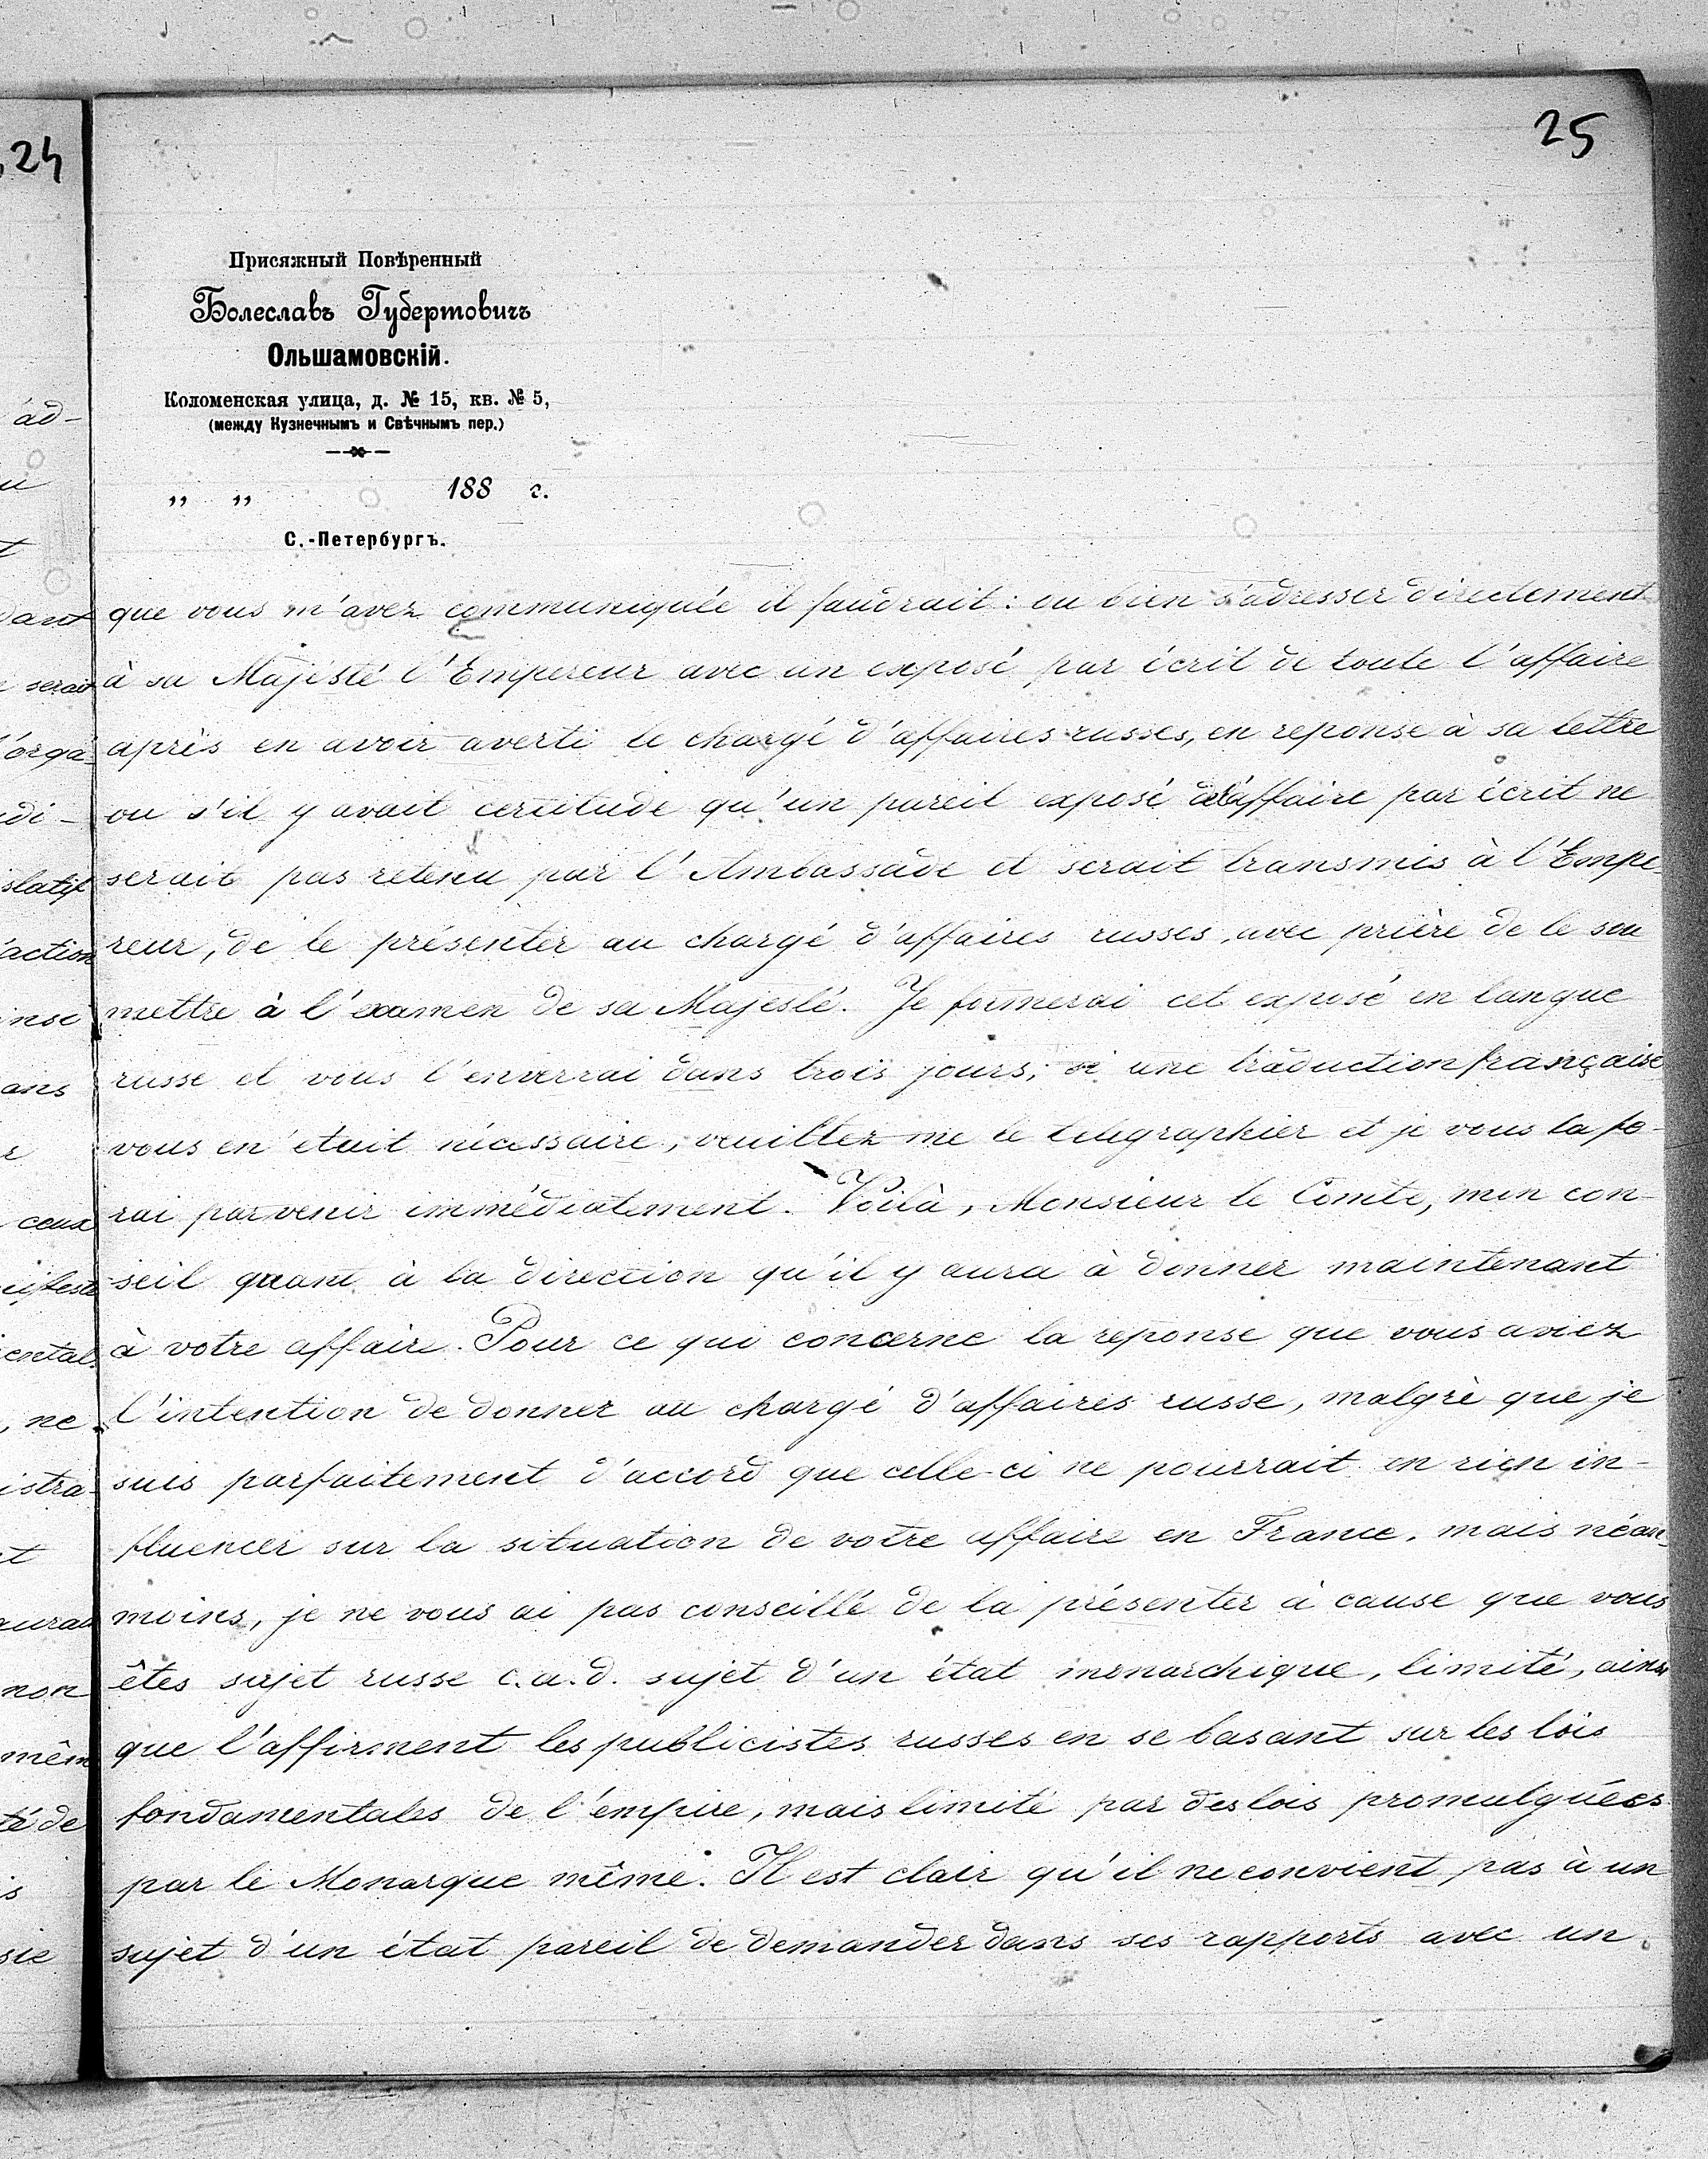 25
24
Присяжный Повѣренный
Болеславъ Губертовичъ
Ольшамовскій.
Коломенская улица, д. № 15, кв. № 5,
(между Кузнечнымъ и Свѣчнымъ пер.)
„ „ 188 г.
С.-Петербургъ.
que vous m'avez communiquée il faudrait: ou bien s'adresser directement
à sa Majésté l'Empereur avec un exposé par écrit de toute l'affaire
après en avoir averti le chargé d'affaires russes, en reponse à sa lettre
ou s'il y avait certitude qu'un pareil exposé de l'affaire par écrit ne
serait pas retenu par l'Ambassade et serait transmis à l'Empe-
reur, de le présenter au chargé d'affaires russes, avec prière de le sou
mettre à l'examen de sa Majesté. Je formerai cet exposé en langue
russe et vous l'enverrai dans trois jours; si une traduction française
vous en était nécessaire, veuillez me le telegraphier et je vous la fe-
rai parvenir immédiatement. Voilà, Monsieur le Comte, mon con-
seil quant à la direction qu'il y aura à donner maintenant
à votre affaire. Pour ce qui concerne la reponse que vous aviez
l'intention de donner au chargé d'affaires russe, malgrè que je
suis parfaitement d'accord que celle-ci ne pourrait en rien in-
fluencer sur la situation de votre affaire en France, mais néan-
moins, je ne vous ai pas conseillé de la présenter à cause que vous
êtes sujet russe c.a.d. sujet d'un état monarchique, limité, ainsi
que l'affirment les publicistes russes en se basant sur les lois
fondamentales de l'empire, mais limité par des lois promulguées
par le Monarque même. Il est clair qu'il ne convient pas à un
sujet d'un état pareil de demander dans ses rapports avec un